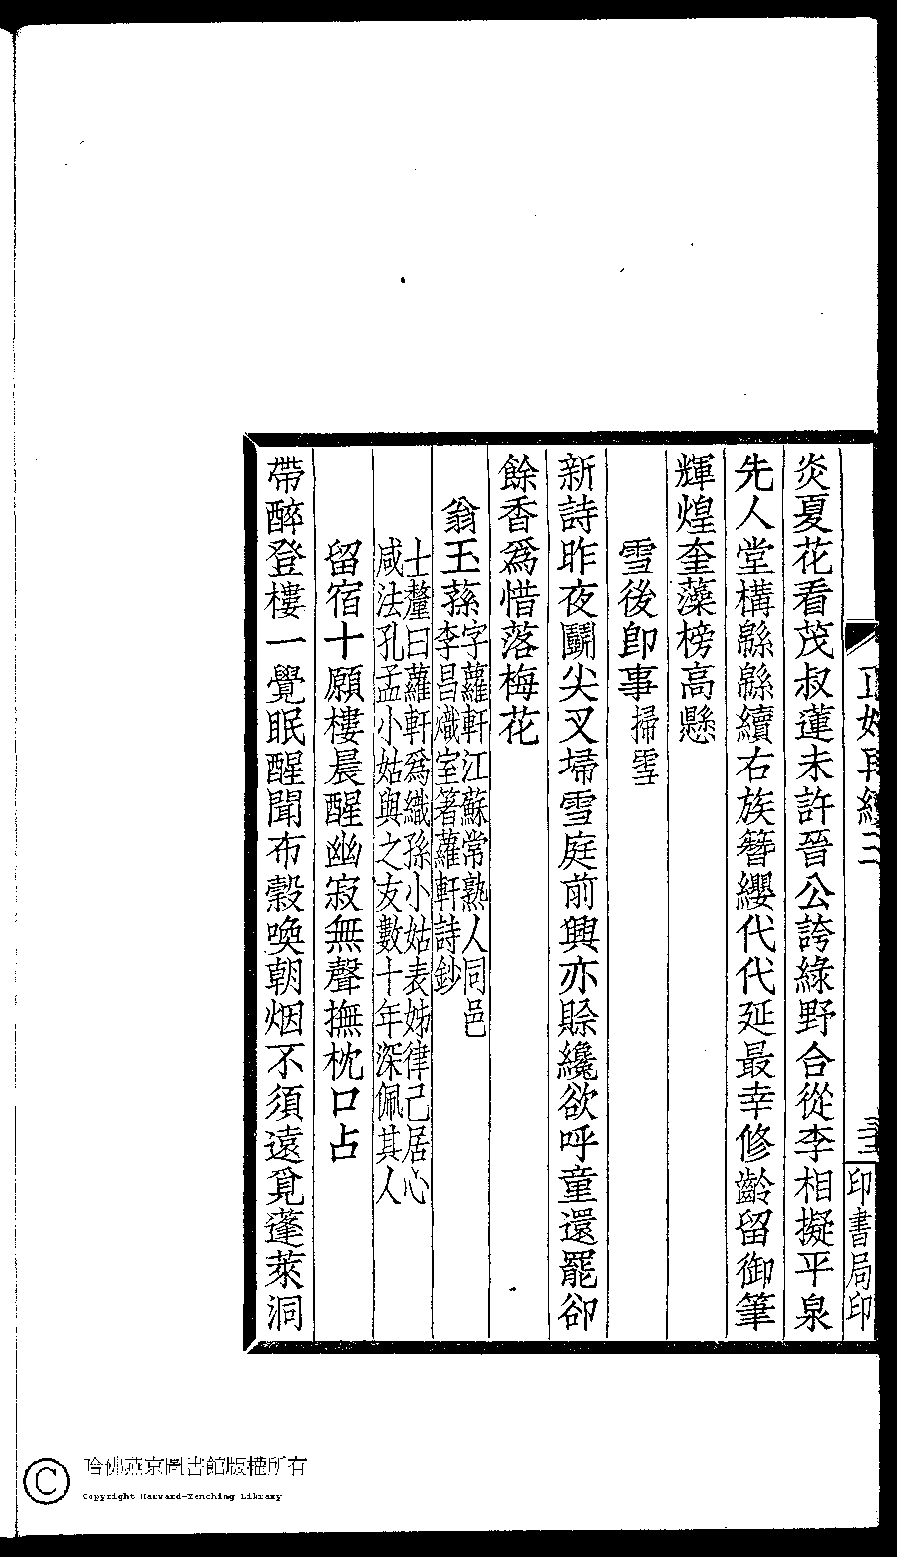 正始再續二
三三
印書局印
炎夏花看茂叔蓮未許晉公誇綠野合從李相擬平泉
先人堂構緜緜續右族簪纓代代延最幸修齡留御筆
輝煌奎藻榜高懸
雪後即事掃雪
新詩昨夜鬬尖叉埽雪庭前興亦賒纔欲呼童還罷卻
餘香爲惜落梅花
翁玉蓀字蘿軒江蘇常熟人同邑
李昌熾室著蘿軒詩鈔
士釐曰蘿軒爲織孫小姑表姊律己居心
咸法孔孟小姑與之友數十年深佩其人
留宿十願樓晨醒幽寂無聲撫枕口占
帶醉登樓一覺眠醒聞布穀喚朝烟不須遠覓蓬萊洞
哈佛燕京圖書館版權所有
Copyright Harvard-Yenching Library